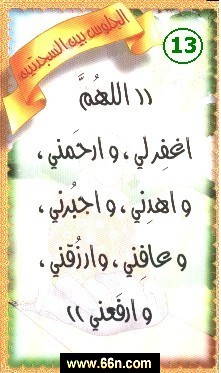 الجلوس بين السجدتين
13
(( اللهُمَّ
اغفِرلي ، و ارحَمني ،
و اهدِني ، و اجبُرني ،
و عافِني ، وارزُقني ،
و ارفَعني ))
www.66n.com